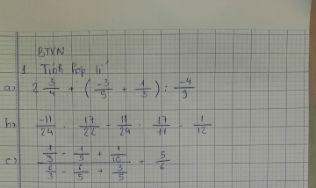 BTVN
1 Tính hợp lí
a) 2 3/4 + ( -3/5 + 1/3 ) : -4/9
b) -11/24 . 17/22 - 11/24 . 17/11 - 1/12
c) (1/3 - 1/5 + 1/10) / (6/3 - 6/5 + 3/5) + 5/6